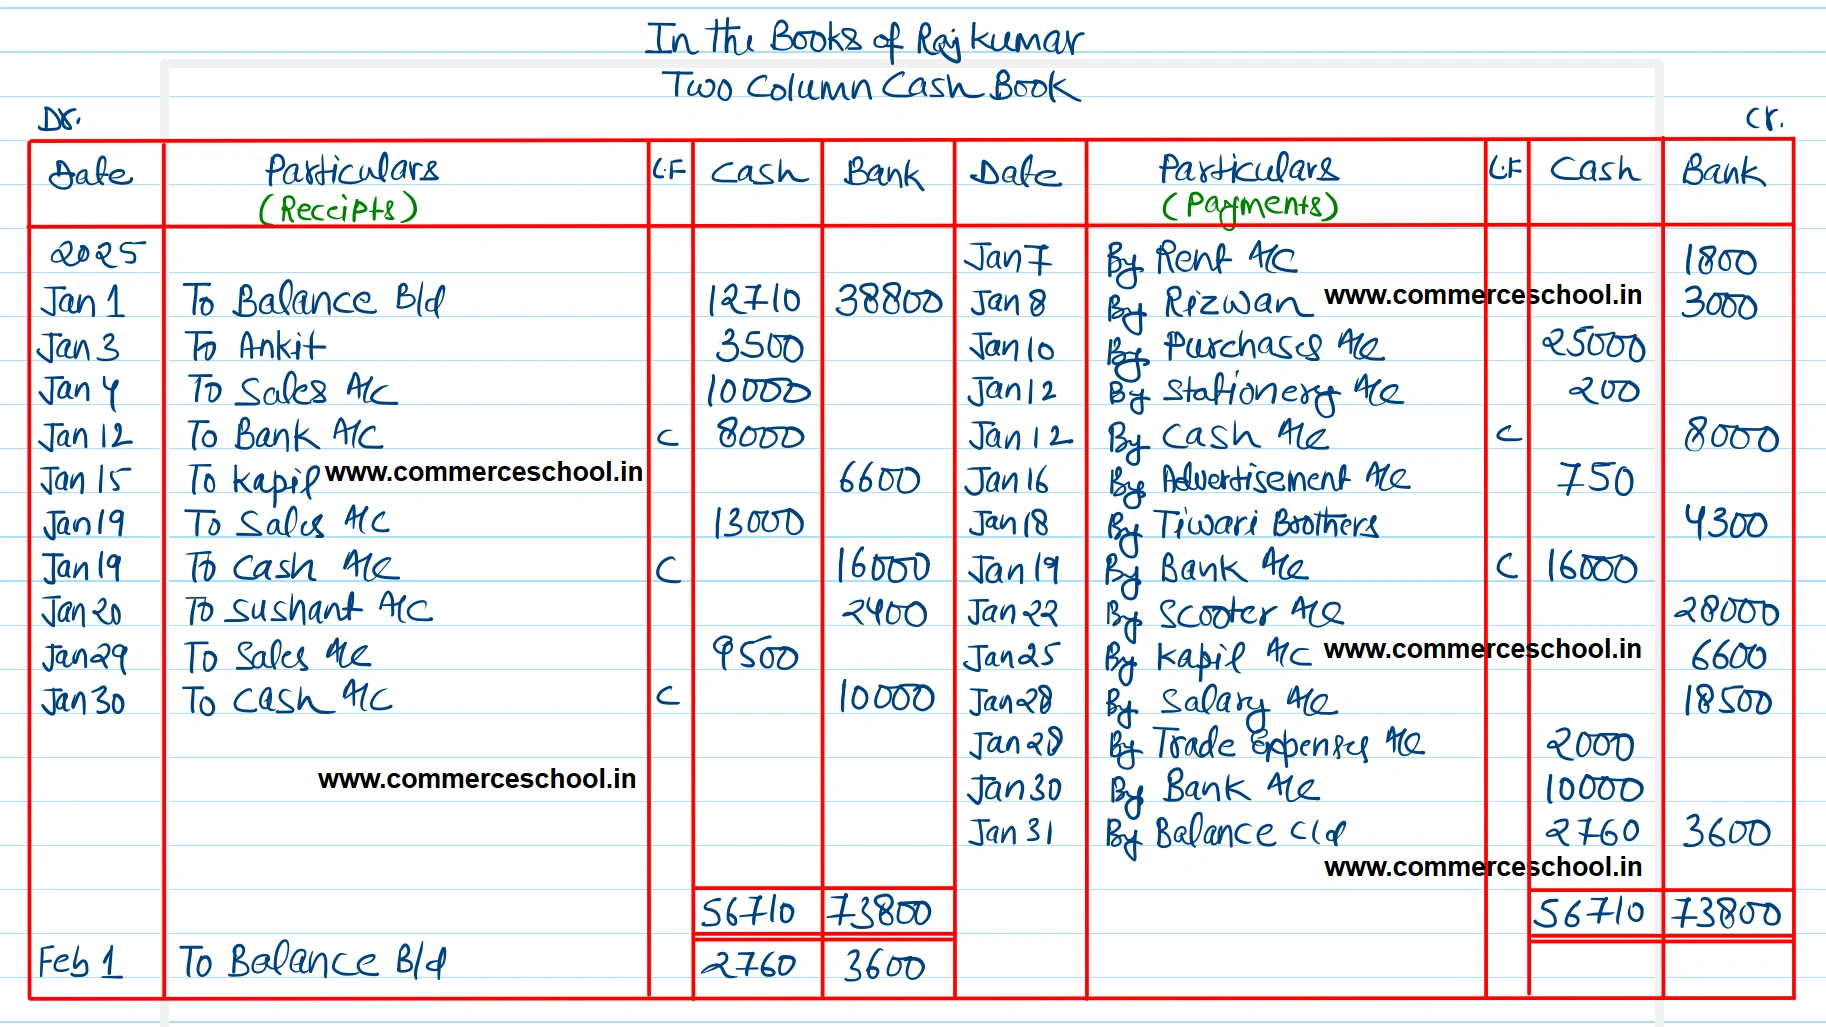 In the Books of Rajkumar
Two Column Cash Book
Dr. Cr.
Date Particulars L.F Cash Bank Date Particulars L.F Cash Bank
(Receipts) (Payments)
2025 Jan 7 By Rent A/C 1800
Jan 1 To Balance B/d 12710 38800 Jan 8 By Rizwan www.commerceschool.in 3000
Jan 3 To Ankit 3500 Jan 10 By Purchases A/c 25000
Jan 4 To Sales A/C 10000 Jan 12 By Stationery A/c 200
Jan 12 To Bank A/C C 8000 Jan 12 By Cash A/c C 8000
Jan 15 To Kapil www.commerceschool.in 6600 Jan 16 By Advertisement A/c 750
Jan 19 To Sales A/C 13000 Jan 18 By Tiwari Brothers 4300
Jan 19 To Cash A/c C 16000 Jan 19 By Bank A/c C 16000
Jan 20 To Sushant A/C 2400 Jan 22 By Scooter A/c 28000
Jan 29 To Sales A/c 9500 Jan 25 By Kapil A/C www.commerceschool.in 6600
Jan 30 To Cash A/C C 10000 Jan 28 By Salary A/c 18500
Jan 28 By Trade Expenses A/c 2000
www.commerceschool.in Jan 30 By Bank A/c 10000
Jan 31 By Balance C/d 2760 3600
www.commerceschool.in
56710 73800 56710 73800
Feb 1 To Balance B/d 2760 3600